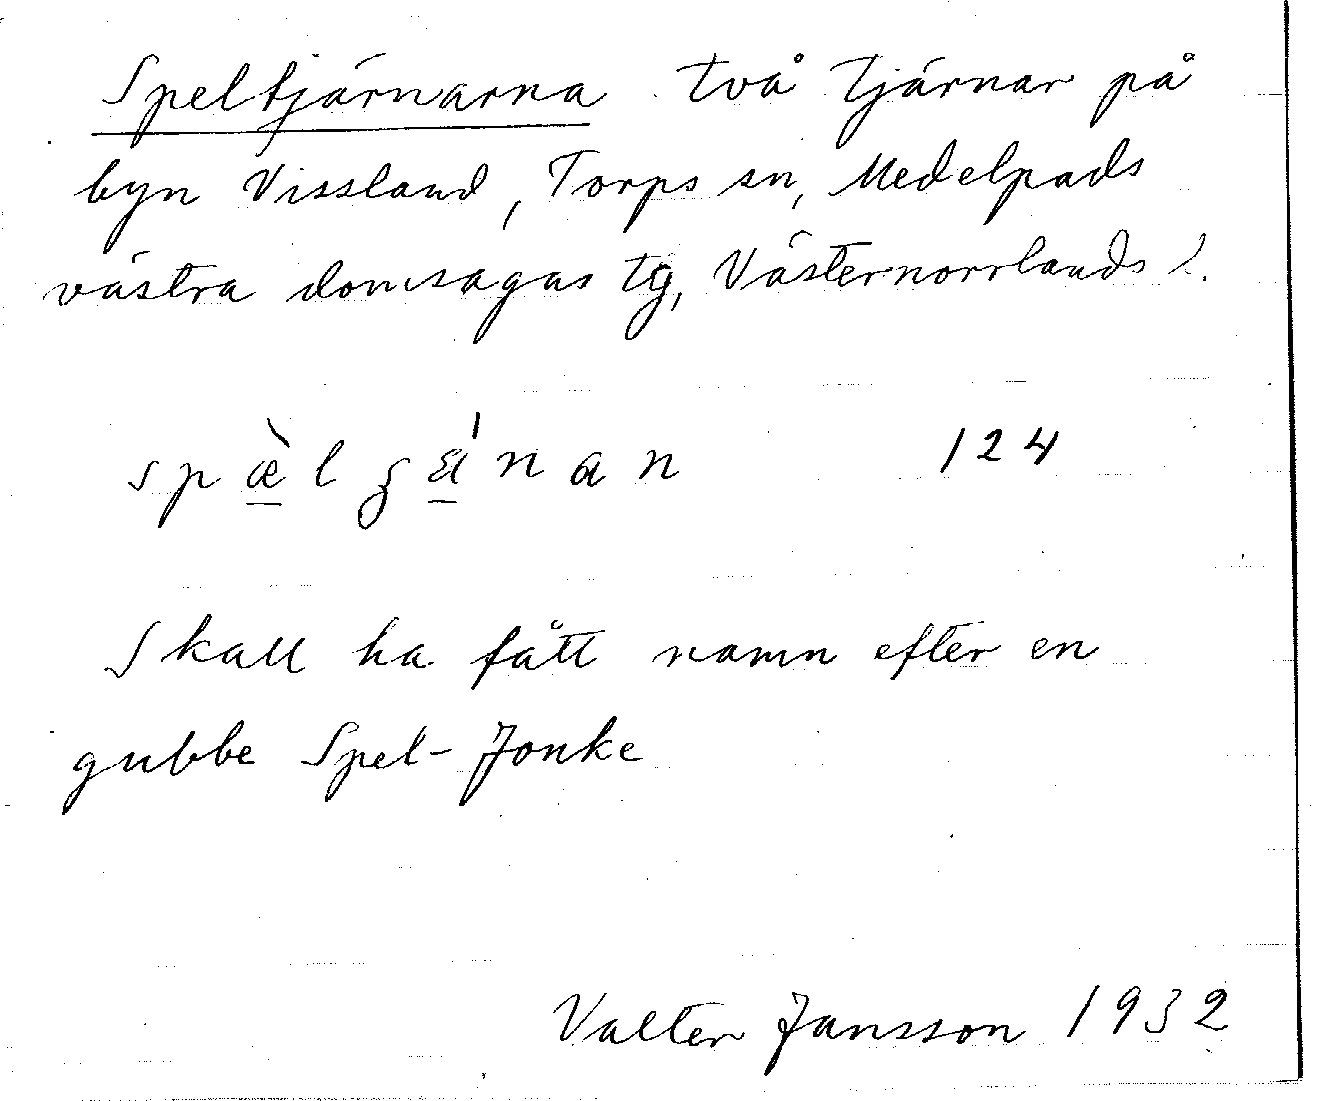 Speltjärnarna två tjärnar på
byn Vissland, Torps sn, Medelpads
västra domsagas tg, Västernorrlands l.
124
Skall ha fått namn efter en
gubbe Spel-Jonke
Valter Jansson 1932